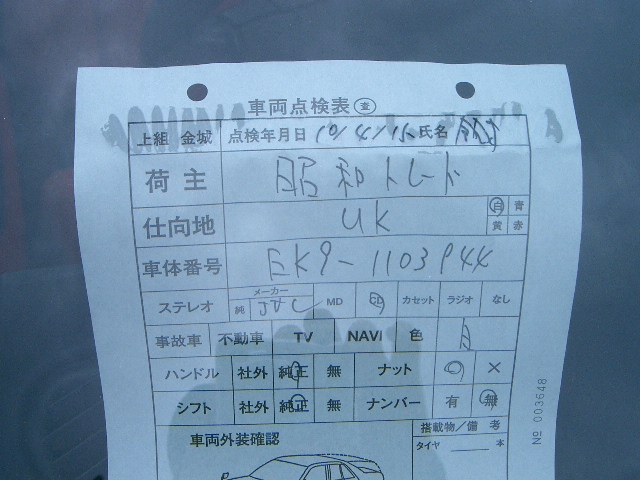 車両点検表 査
上組 金城 点検年月日 10/4/15 氏名
荷主 昭和トレード
仕向地 UK 白 青
黄 赤
車体番号 EK9-1103944
ステレオ 純 メーカー JVC MD CD カセット ラジオ なし
事故車 不動車 TV NAVI 色 白
ハンドル 社外 純正 無 ナット ○ ×
シフト 社外 純正 無 ナンバー 有 無
車両外装確認 搭載物/備考
タイヤ 本
No 003648